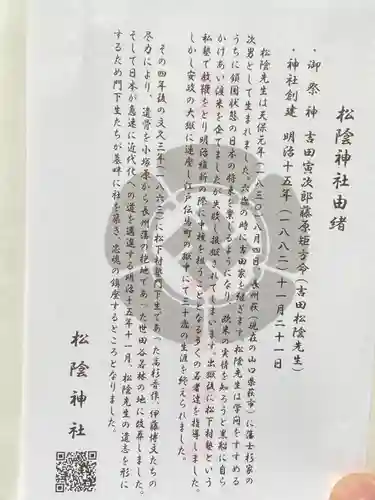 松陰神社由緒
・御祭神 吉田寅次郎藤原矩方命(吉田松陰先生)
・神社創建 明治十五年(一八八二)十一月二十一日
松陰先生は天保元年(一八三〇)八月四日、長州萩(現在の山口県萩市)に藩士杉家の
次男として生まれました。六歳の時に吉田家を継ぎます。松陰先生は学問をすすめる
うちに鎖国状態の日本の将来を案じるようになり、欧米の実情を知ろうと黒船に自ら
かけあい渡来を企てましたが失敗し投獄されてしまいます。出獄後に松下村塾という
私塾で教鞭をとり明治維新の際に中核を担うことになる多くの若者達を指導しました。
しかし安政の大獄に連座し江戸伝馬町の獄中にて三十歳の生涯を終えられました。
その四年後の文久三年(一八六三)に松下村塾門下生であった高杉晋作、伊藤博文たちの
尽力により、遺骨を小塚原から長州藩の抱地であった世田谷若林の地に改葬しました。
そして日本が急速に近代化への道を邁進する明治十五年十一月、松陰先生の遺志を形に
するため門下生たちが墓畔に社を築き、忠魂の鎮座するところとなりました。
松陰神社